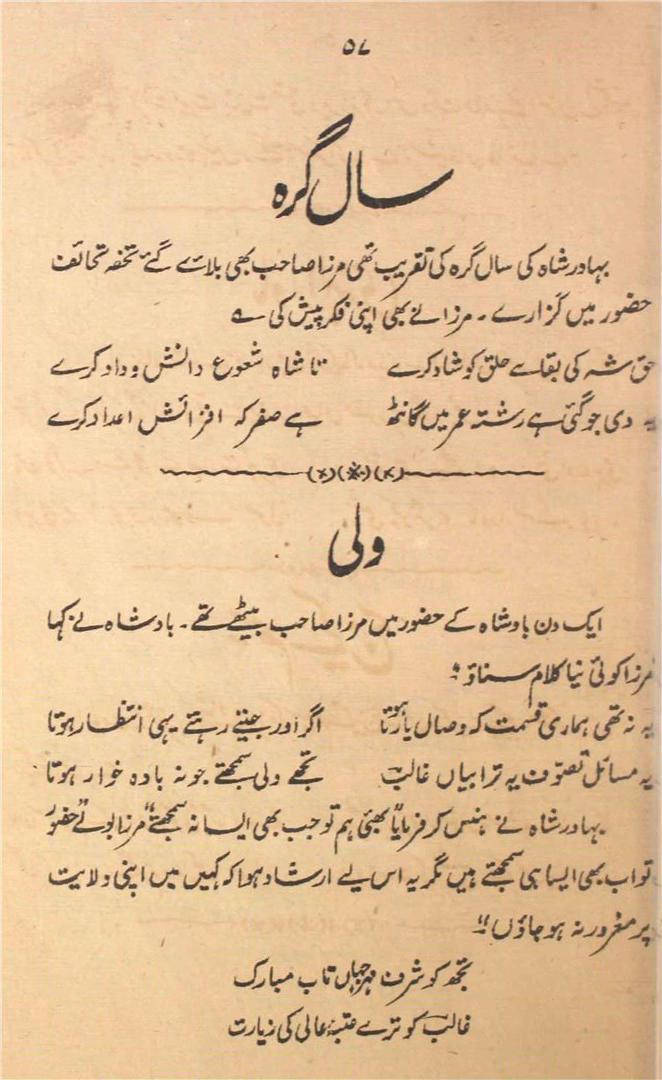 ۵۷
سال گرہ
بہادر شاہ کی سال گرہ کی تقریب تھی مرزا صاحب بھی بلائے گئے تحفہ تحائف
حضور میں گزارے۔ مرزا نے بھی اپنی فکر پیش کی ؎
حق شہ کی بقا سے خلق کو شاد کرے تا شاہ شعوع دانش و داد کرے
یہ دی جو گئی ہے رشتہ عمر میں گانٹھ ہے صفر کہ افزائش اعداد کرے
(×)(※)(×)
ولی
ایک دن بادشاہ کے حضور میں مرزا صاحب بیٹھے تھے۔ بادشاہ نے کہا
مرزا کوئی نیا کلام سناؤ :
یہ نہ تھی ہماری قسمت کہ وصال یار ہوتا اگر اور جیتے رہتے یہی انتظار ہوتا
یہ مسائل تصوّف یہ ترا بیاں غالبؔ تجھے ولی سمجھتے جو نہ بادہ خوار ہوتا
بہادر شاہ نے ہنس کر فرمایا "بھئی ہم تو جب بھی ایسا نہ سمجھتے" مرزا بولے "حضور
تو اب بھی ایسا ہی سمجھتے ہیں مگر یہ اس لیے ارشاد ہوا کہ کہیں میں اپنی ولایت
پر مغرور نہ ہو جاؤں"!
تجھ کو شرف مہر جہاں تاب مبارک
غالبؔ کو ترے عتبۂ عالی کی زیارت